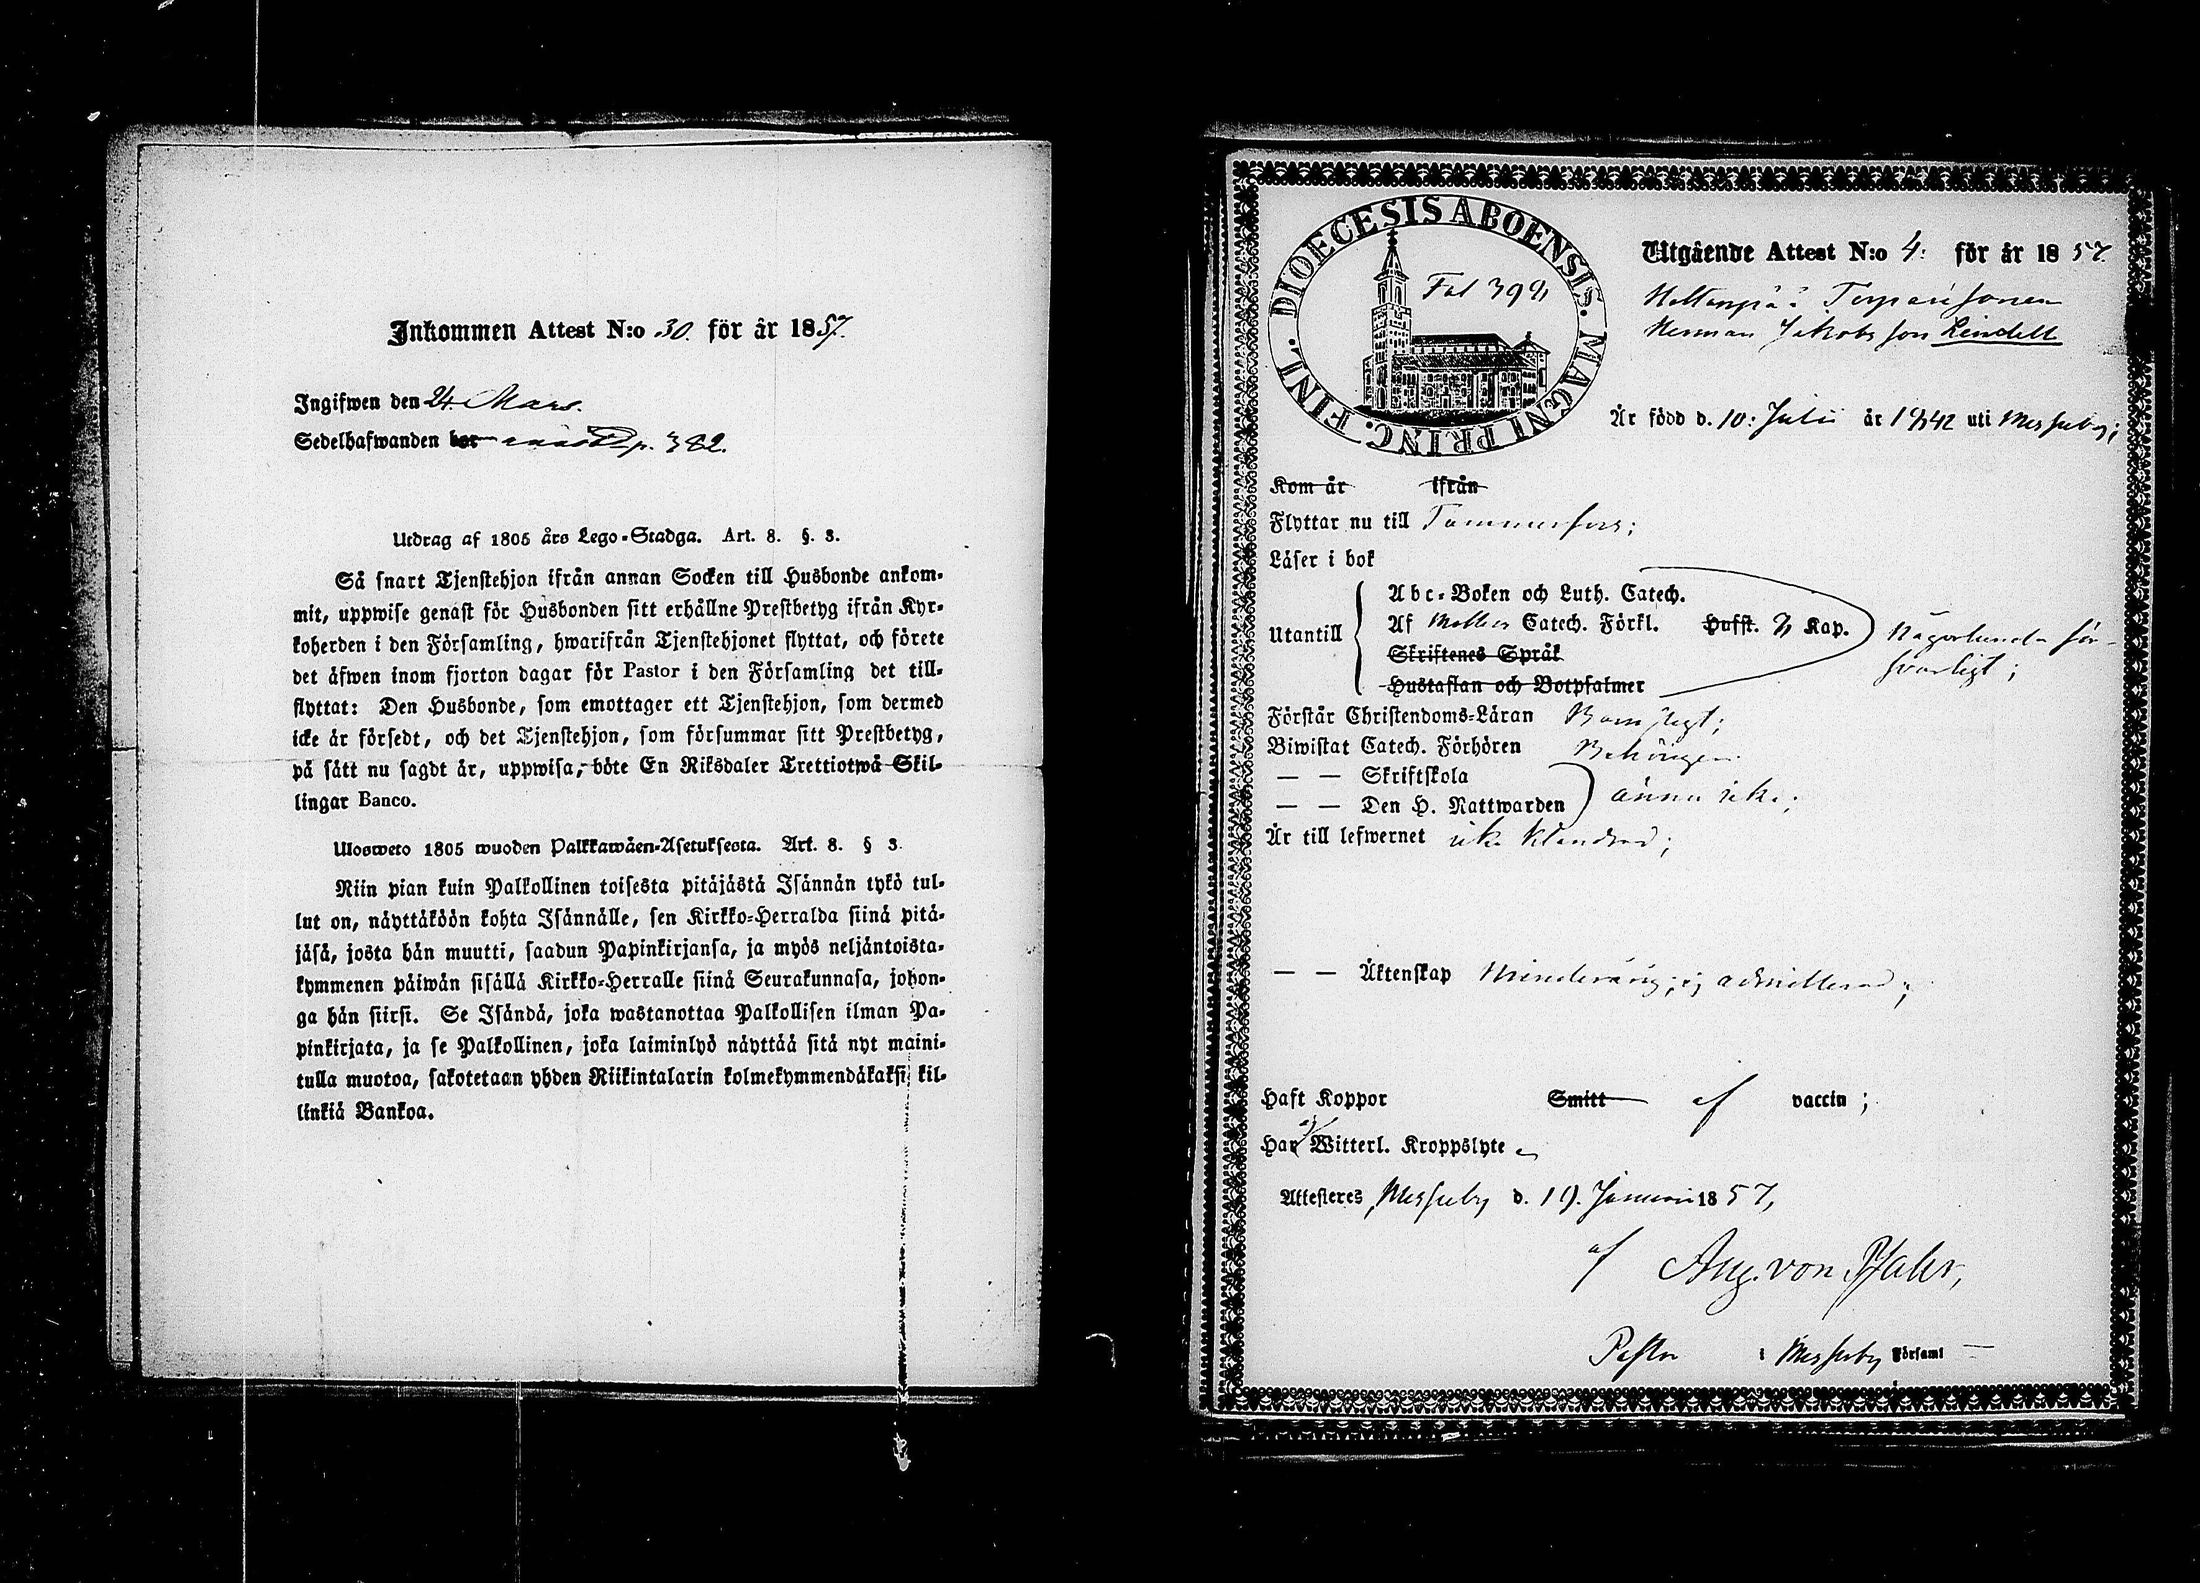 Inkommen Attest N:o 30. för år 1857.
Ingifwen den 24. Mars.
Sedelhafwanden bor p. 382.
Utdrag af 1805 års Lego-Stadga. Art. 8. §. 3.
Så snart Tjenstehjon ifrån annan Socken till Husbonde ankom-
mit, uppwise genast för Husbonden sitt erhållne Prestbetyg ifrån Kyr-
koherden i den Församling, hwarifrån Tjenstehjonet flyttat, och förete
det äfwen inom fjorton dagar för Pastor i den Församling det till-
flyttat: Den Husbonde, som emottager ett Tjenstehjon, som dermed
icke är försedt, och det Tjenstehjon, som försummar sitt Prestbetyg,
på sätt nu sagdt är, uppwisa, böte En Riksdaler Trettiotwå Skil-
lingar Banco.
Ulosweto 1805 wuoden Palkkawäen-Asetuksesta. Art. 8. § 3.
Niin pian kuin Palkollinen toisesta pitäjästä Isännän tykö tul-
lut on, näyttäköön kohta Isännälle, sen Kirkko-Herralda siinä pitä-
jäsä, josta hän muutti, saadun Papinkirjansa, ja myös neljäntoista-
kymmenen päiwän sisällä Kirkko-Herralle siinä Seurakunnasa, johon-
ga hän siirsi. Se Isändä, joka wastanottaa Palkollisen ilman Pa-
pinkirjata, ja se Palkollinen, joka laiminlyö näyttää sitä nyt maini-
tulla muotoa, sakotetaan yhden Riikintalarin kolmekymmendäkaksi kil-
linkiä Bankoa.
DIOECESIS ABOENSIS. MAGNI PRINC. FINL.
Fol 398
Utgående Attest N:o 4: för år 1857.
Torparesonen
Herman Jakobsson Lindell
Är född d. 10: Julii år 1842 uti Messuby;
Kom år ifrån
Flyttar nu till Tammerfors;
Läser i bok
Utantill
Abc-Boken och Luth. Catech.
Af Möllers Catech. Förkl. Hufst. 8 Kap.
Skriftenes Språk
Hustaflan och Botpsalmer
Någorlunda för-
svarligt;
Förstår Christendoms-Läran Barnsligt;
Biwistat Catech. Förhören Behörigen
— — Skriftskola
— — Den H. Nattwarden
ännu icke;
Är till lefwernet icke klandrad;
— — Äktenskap Minderårig; ej admitterad;
Haft Koppor Smitt af vaccin;
Har ej Witterl. Kroppslyte
Attesteres, Messuby d. 19. Januari 1857,
af Aug. von Pfaler,
Pastor i Messuby Församl